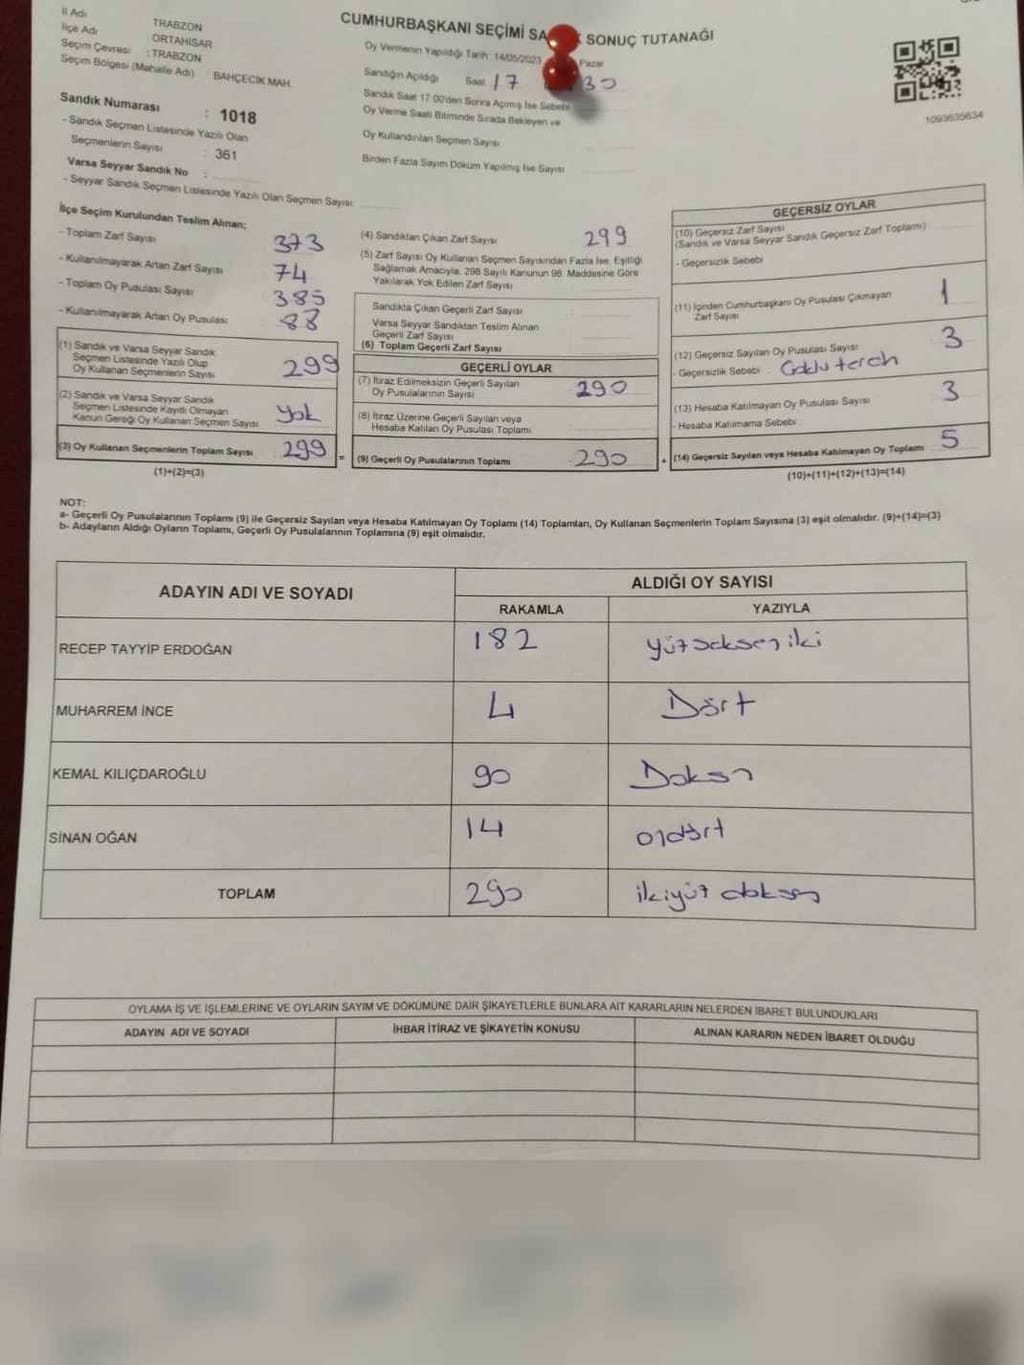 İl Adı TRABZON
İlçe Adı ORTAHİSAR
Seçim Çevresi : TRABZON
Seçim Bölgesi (Mahalle Adı) BAHÇECİK MAH.
Sandık Numarası : 1018
- Sandık Seçmen Listesinde Yazılı Olan
Seçmenlerin Sayısı : 361
Varsa Seyyar Sandık No :
- Seyyar Sandık Seçmen Listesinde Yazılı Olan Seçmen Sayısı:
CUMHURBAŞKANI SEÇİMİ SA K SONUÇ TUTANAĞI
Oy Vermenin Yapıldığı Tarih : 14/05/2023 Pazar
Sandığın Açıldığı Saat 17 30
Sandık Saat 17:00'den Sonra Açılmış İse Sebebi
Oy Verme Saati Bitiminde Sırada Bekleyen ve
Oy Kullandırılan Seçmen Sayısı
Birden Fazla Sayım Döküm Yapılmış İse Sayısı
1093635634
İlçe Seçim Kurulundan Teslim Alınan;
- Toplam Zarf Sayısı 373
- Kullanılmayarak Artan Zarf Sayısı 74
- Toplam Oy Pusulası Sayısı 385
- Kullanılmayarak Artan Oy Pusulası 88
(1) Sandık ve Varsa Seyyar Sandık
Seçmen Listesinde Yazılı Olup
Oy Kullanan Seçmenlerin Sayısı 299
(2) Sandık ve Varsa Seyyar Sandık
Seçmen Listesinde Kayıtlı Olmayan
Kanun Gereği Oy Kullanan Seçmen Sayısı Yok
(3) Oy Kullanan Seçmenlerin Toplam Sayısı 299 =
(1)+(2)=(3)
(4) Sandıktan Çıkan Zarf Sayısı 299
(5) Zarf Sayısı Oy Kullanan Seçmen Sayısından Fazla İse, Eşitliği
Sağlamak Amacıyla, 298 Sayılı Kanunun 98. Maddesine Göre
Yakılarak Yok Edilen Zarf Sayısı
Sandıkta Çıkan Geçerli Zarf Sayısı
Varsa Seyyar Sandıktan Teslim Alınan
Geçerli Zarf Sayısı
(6) Toplam Geçerli Zarf Sayısı
GEÇERLİ OYLAR
(7) İtiraz Edilmeksizin Geçerli Sayılan
Oy Pusulalarının Sayısı 290
(8) İtiraz Üzerine Geçerli Sayılan veya
Hesaba Katılan Oy Pusulası Toplamı
(9) Geçerli Oy Pusulalarının Toplamı 290 +
GEÇERSİZ OYLAR
(10) Geçersiz Zarf Sayısı
(Sandık ve Varsa Seyyar Sandık Geçersiz Zarf Toplamı)
- Geçersizlik Sebebi
(11) İçinden Cumhurbaşkanı Oy Pusulası Çıkmayan
Zarf Sayısı 1
(12) Geçersiz Sayılan Oy Pusulası Sayısı 3
- Geçersizlik Sebebi Çoklu tercih
(13) Hesaba Katılmayan Oy Pusulası Sayısı 3
- Hesaba Katılmama Sebebi
(14) Geçersiz Sayılan veya Hesaba Katılmayan Oy Toplamı 5
(10)+(11)+(12)+(13)=(14)
NOT:
a- Geçerli Oy Pusulalarının Toplamı (9) ile Geçersiz Sayılan veya Hesaba Katılmayan Oy Toplamı (14) Toplamları, Oy Kullanan Seçmenlerin Toplam Sayısına (3) eşit olmalıdır. (9)+(14)=(3)
b- Adayların Aldığı Oyların Toplamı, Geçerli Oy Pusulalarının Toplamına (9) eşit olmalıdır.
ADAYIN ADI VE SOYADI ALDIĞI OY SAYISI
RAKAMLA YAZIYLA
RECEP TAYYİP ERDOĞAN 182 yüzseksen iki
MUHARREM İNCE 4 Dört
KEMAL KILIÇDAROĞLU 90 Doksan
SİNAN OĞAN 14 ondört
TOPLAM 290 ikiyüz doksan
OYLAMA İŞ VE İŞLEMLERİNE VE OYLARIN SAYIM VE DÖKÜMÜNE DAİR ŞİKAYETLERLE BUNLARA AİT KARARLARIN NELERDEN İBARET BULUNDUKLARI
ADAYIN ADI VE SOYADI İHBAR İTİRAZ VE ŞİKAYETİN KONUSU ALINAN KARARIN NEDEN İBARET OLDUĞU